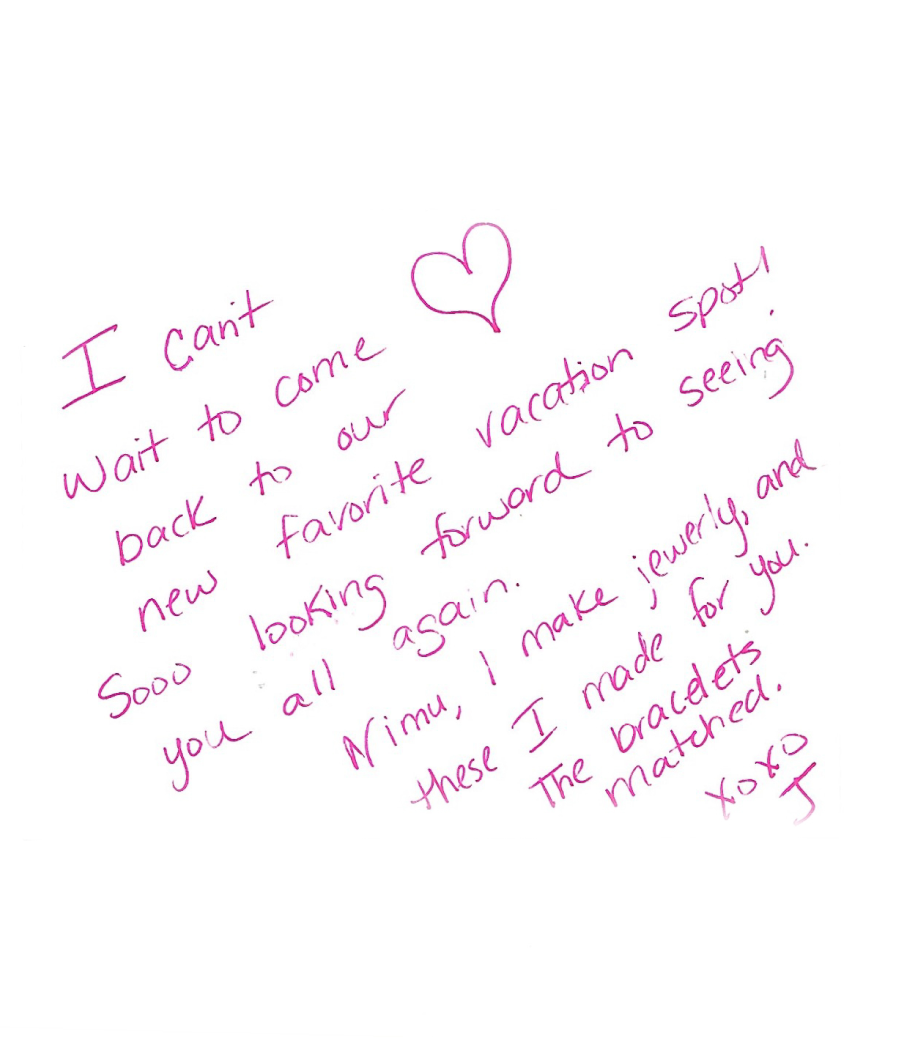 I can't
wait to come
back to our
new favorite vacation spot!
Sooo looking forward to seeing
you all again.
Nimu, I make jewerly, and
these I made for you.
The bracelets
matched.
xoxo
J